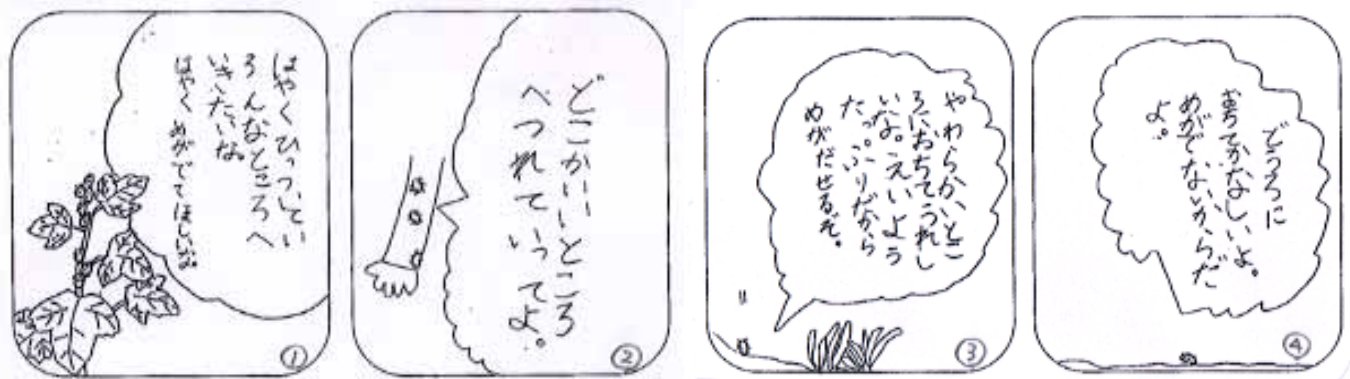 はやくひっついてい
ろんなところへ
いきたいな。
はやくめがでてほしいな。
①
どこかいいところ
へつれていってよ。
②
やわらかいとこ
ろにおちてうれし
いな。えいよう
たっぷりだから
めがだせるぞ。
③
どうろに
おちてかなしいよ。
めがでないからだ
よ。
④